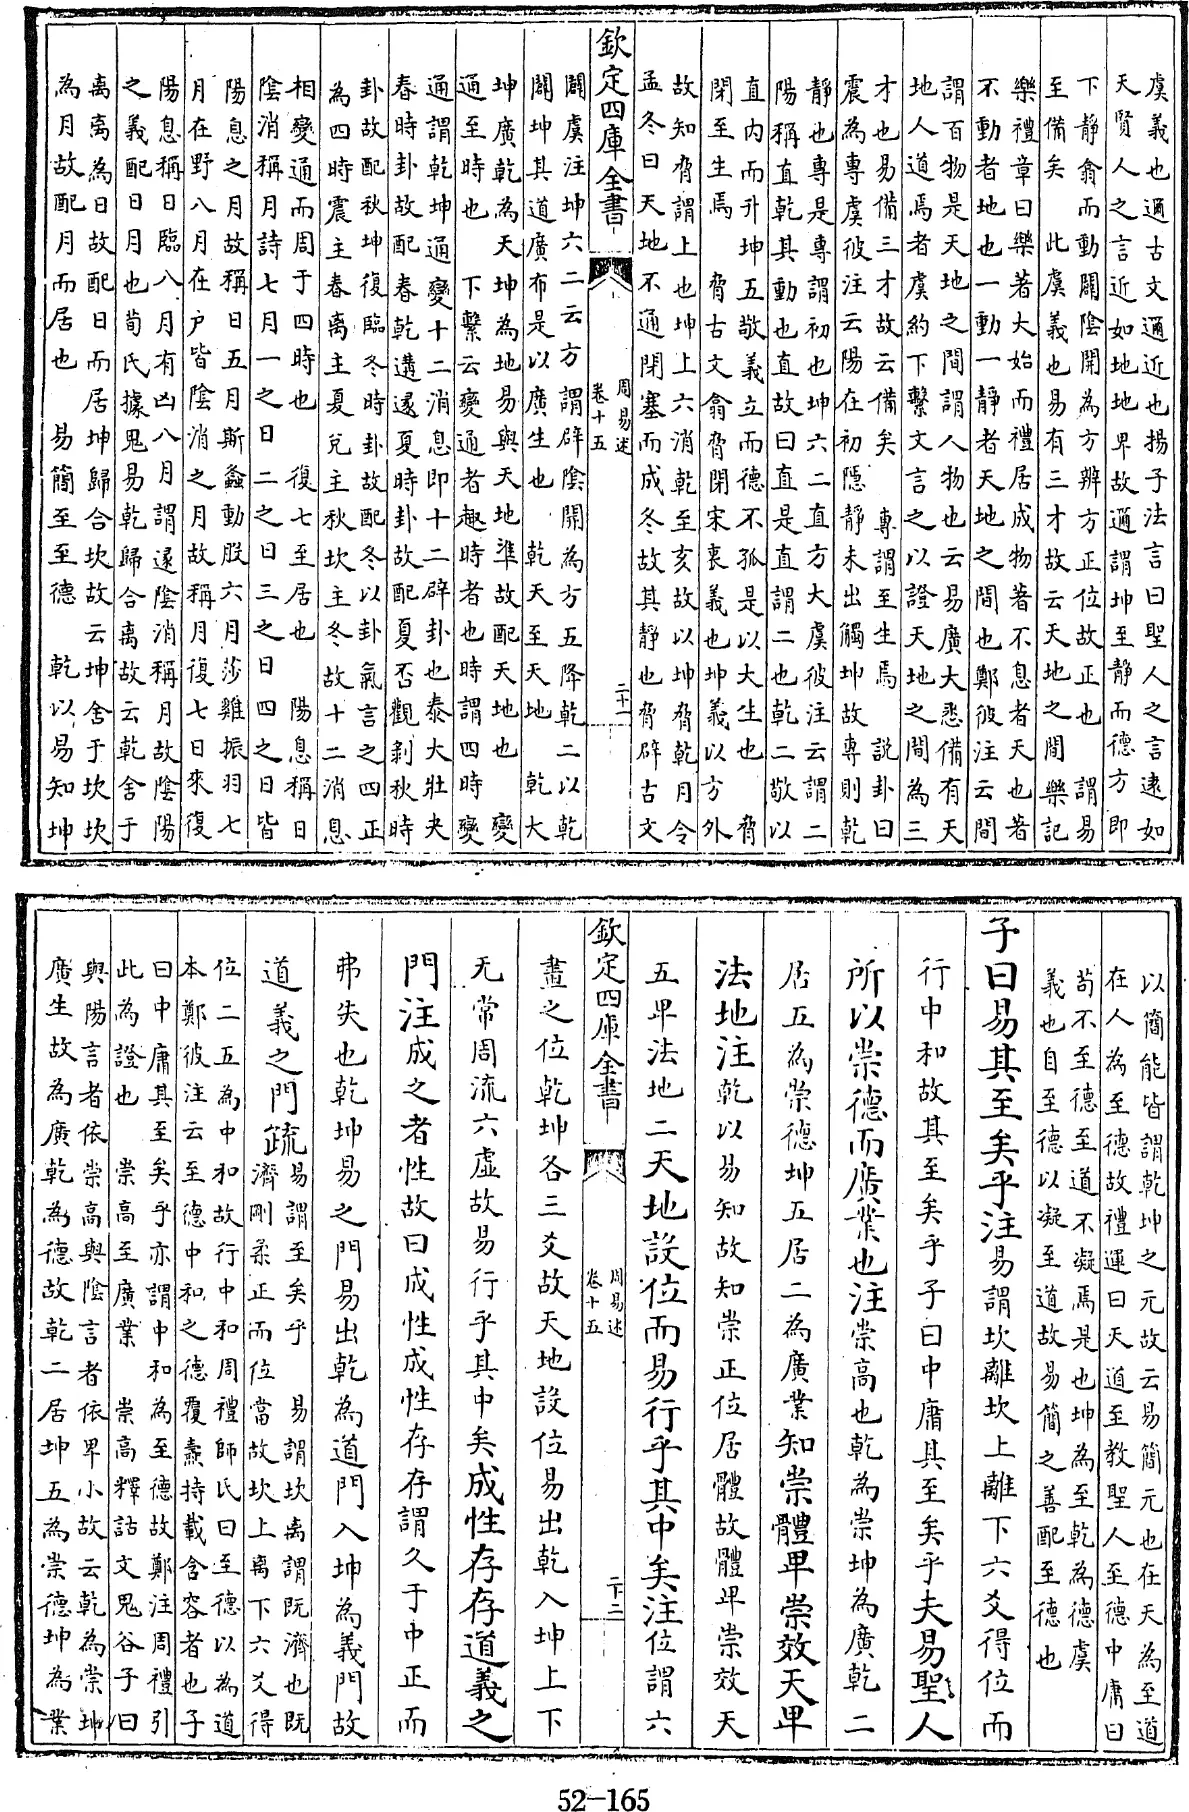 虞義也邇古文邇近也揚子法言曰聖人之言遠如
天賢人之言近如地地卑故邇謂坤至静而德方即
下静翕而動闢陰開為方辨方正位故正也　謂易
至備矣　此虞義也易有三才故云天地之間樂記
樂禮章曰樂著大始而禮居成物著不息者天也著
不動者地也一動一静者天地之間也鄭彼注云間
謂百物是天地之間謂人物也云易廣大悉備有天
地人道焉者虞約下繫文言之以證天地之間為三
才也易備三才故云備矣　專謂至生焉　説卦曰
震為專虞彼注云陽在初隱静未出觸坤故專則乾
静也專是專謂初也坤六二直方大虞彼注云謂二
陽稱直乾其動也直故曰直是直謂二也乾二敬以
直内而升坤五敬義立而德不孤是以大生也　脅
閉至生焉　脅古文翕脅閉宋衷義也坤義以方外
故知脅謂上也坤上六消乾至亥故以坤脅乾月令
孟冬曰天地不通閉塞而成冬故其静也脅辟古文
欽定四庫全書
周易述
卷十五
二十一
闢虞注坤六二云方謂辟陰開為方五降乾二以乾
闢坤其道廣布是以廣生也　乾天至天地　乾大
坤廣乾為天坤為地易與天地準故配天地也　變
通至時也　下繫云變通者趣時者也時謂四時變
通謂乾坤通變十二消息即十二辟卦也泰大壯夬
春時卦故配春乾遘遯夏時卦故配夏否觀剥秋時
卦故配秋坤復臨冬時卦故配冬以卦氣言之四正
為四時震主春離主夏兌主秋坎主冬故十二消息
相變通而周于四時也　復七至居也　陽息稱日
陰消稱月詩七月一之日二之日三之日四之日皆
陽息之月故稱日五月斯螽動股六月莎雞振羽七
月在野八月在户皆陰消之月故稱月復七日來復
陽息稱日臨八月有凶八月謂遯陰消稱月故陰陽
之義配日月也荀氏據鬼易乾歸合离故云乾舍于
离离為日故配日而居坤歸合坎故云坤舍于坎坎
為月故配月而居也　易簡至至德　乾以易知坤
以簡能皆謂乾坤之元故云易簡元也在天為至道
在人為至德故禮運曰天道至教聖人至德中庸曰
苟不至德至道不凝焉是也坤為至乾為德虞
義也自至德以凝至道故易簡之善配至德也
子曰易其至矣乎注易謂坎離坎上離下六爻得位而
行中和故其至矣乎子曰中庸其至矣乎夫易聖人
所以崇德而廣業也注崇高也乾為崇坤為廣乾二
居五為崇德坤五居二為廣業知崇體卑崇效天卑
法地注乾以易知故知崇正位居體故體卑崇效天
五卑法地二天地設位而易行乎其中矣注位謂六
欽定四庫全書
周易述
卷十五
二十二
畫之位乾坤各三爻故天地設位易出乾入坤上下
无常周流六虛故易行乎其中矣成性存存道義之
門注成之者性故曰成性成性存存謂久于中正而
弗失也乾坤易之門易出乾為道門入坤為義門故
道義之門疏易謂至矣乎　易謂坎离謂既濟也既
濟剛柔正而位當故坎上离下六爻得
位二五為中和故行中和周禮師氏曰至德以為道
本鄭彼注云至德中和之德覆燾持載含容者也子
曰中庸其至矣乎亦謂中和為至德故鄭注周禮引
此為證也　崇高至廣業　崇高釋詁文鬼谷子曰
與陽言者依崇高與陰言者依卑小故云乾為崇坤
廣生故為廣乾為德故乾二居坤五為崇德坤為業
52-165